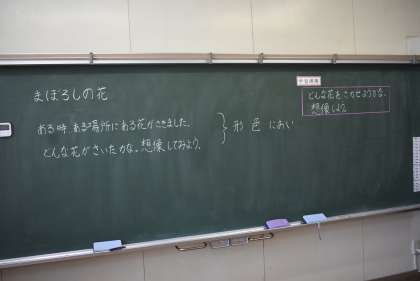 まぼろしの花
ある時 ある場所にある花がさきました。
どんな花がさいたかな。想像してみよう。
形 色 におい
どんな花をさかせようかな。
想像しよう